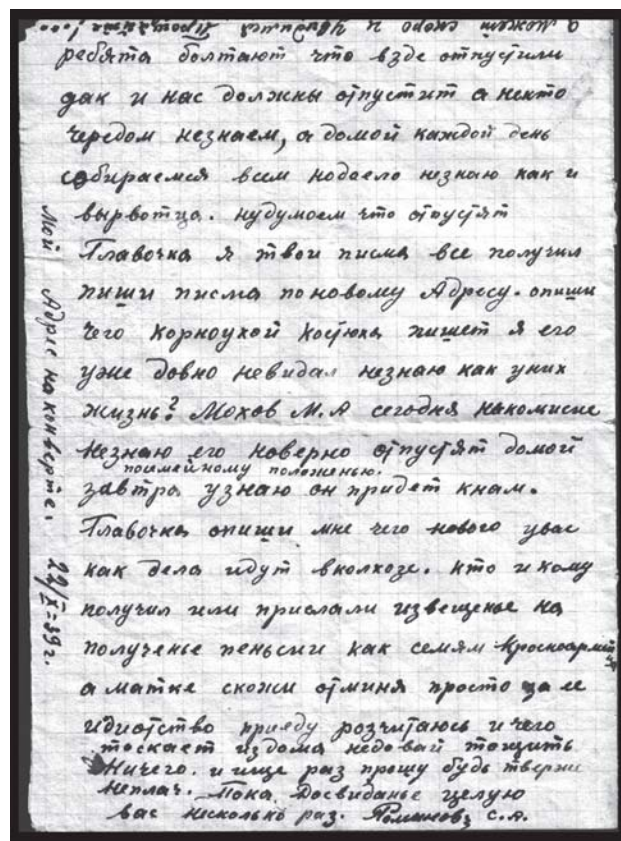 ребята болтают что взде отпустили
дак и нас должны отпустит а некто
чередом незнаем, а домой каждой день
собираемся всем надоело незнаю как и
вырвотца. нудумоем что отпустят
Главочка я твои писма все получил
пиши писма поновому Адресу. опиши
чего Корноухой Костюха пишет я его
уже довно невидал незнаю как уних
жизнь? Мохов М.А сегодня накомисие
незнаю его наверно отпустят домой
посмейному положенью.
завтра узнаю он придет кнам.
Главочка опиши мне чего нового увас
как дела идут вколхозе. кто и кому
получил или прислали извещенье на
полученье пеньсии как семям Красноармий
а матке скожи отминя просто за ее
идиотство прияду розчитаюсь и чего
тоскает издома недовай тощить
Ничего. и ище раз прошу будь тверже
неплач. Пока Досвиданье целую
вас несколько раз. Романов, С.А.
Мой Адрес на конверте. 22/X=39г.
а можит скоро и увидимся Прощайте!...